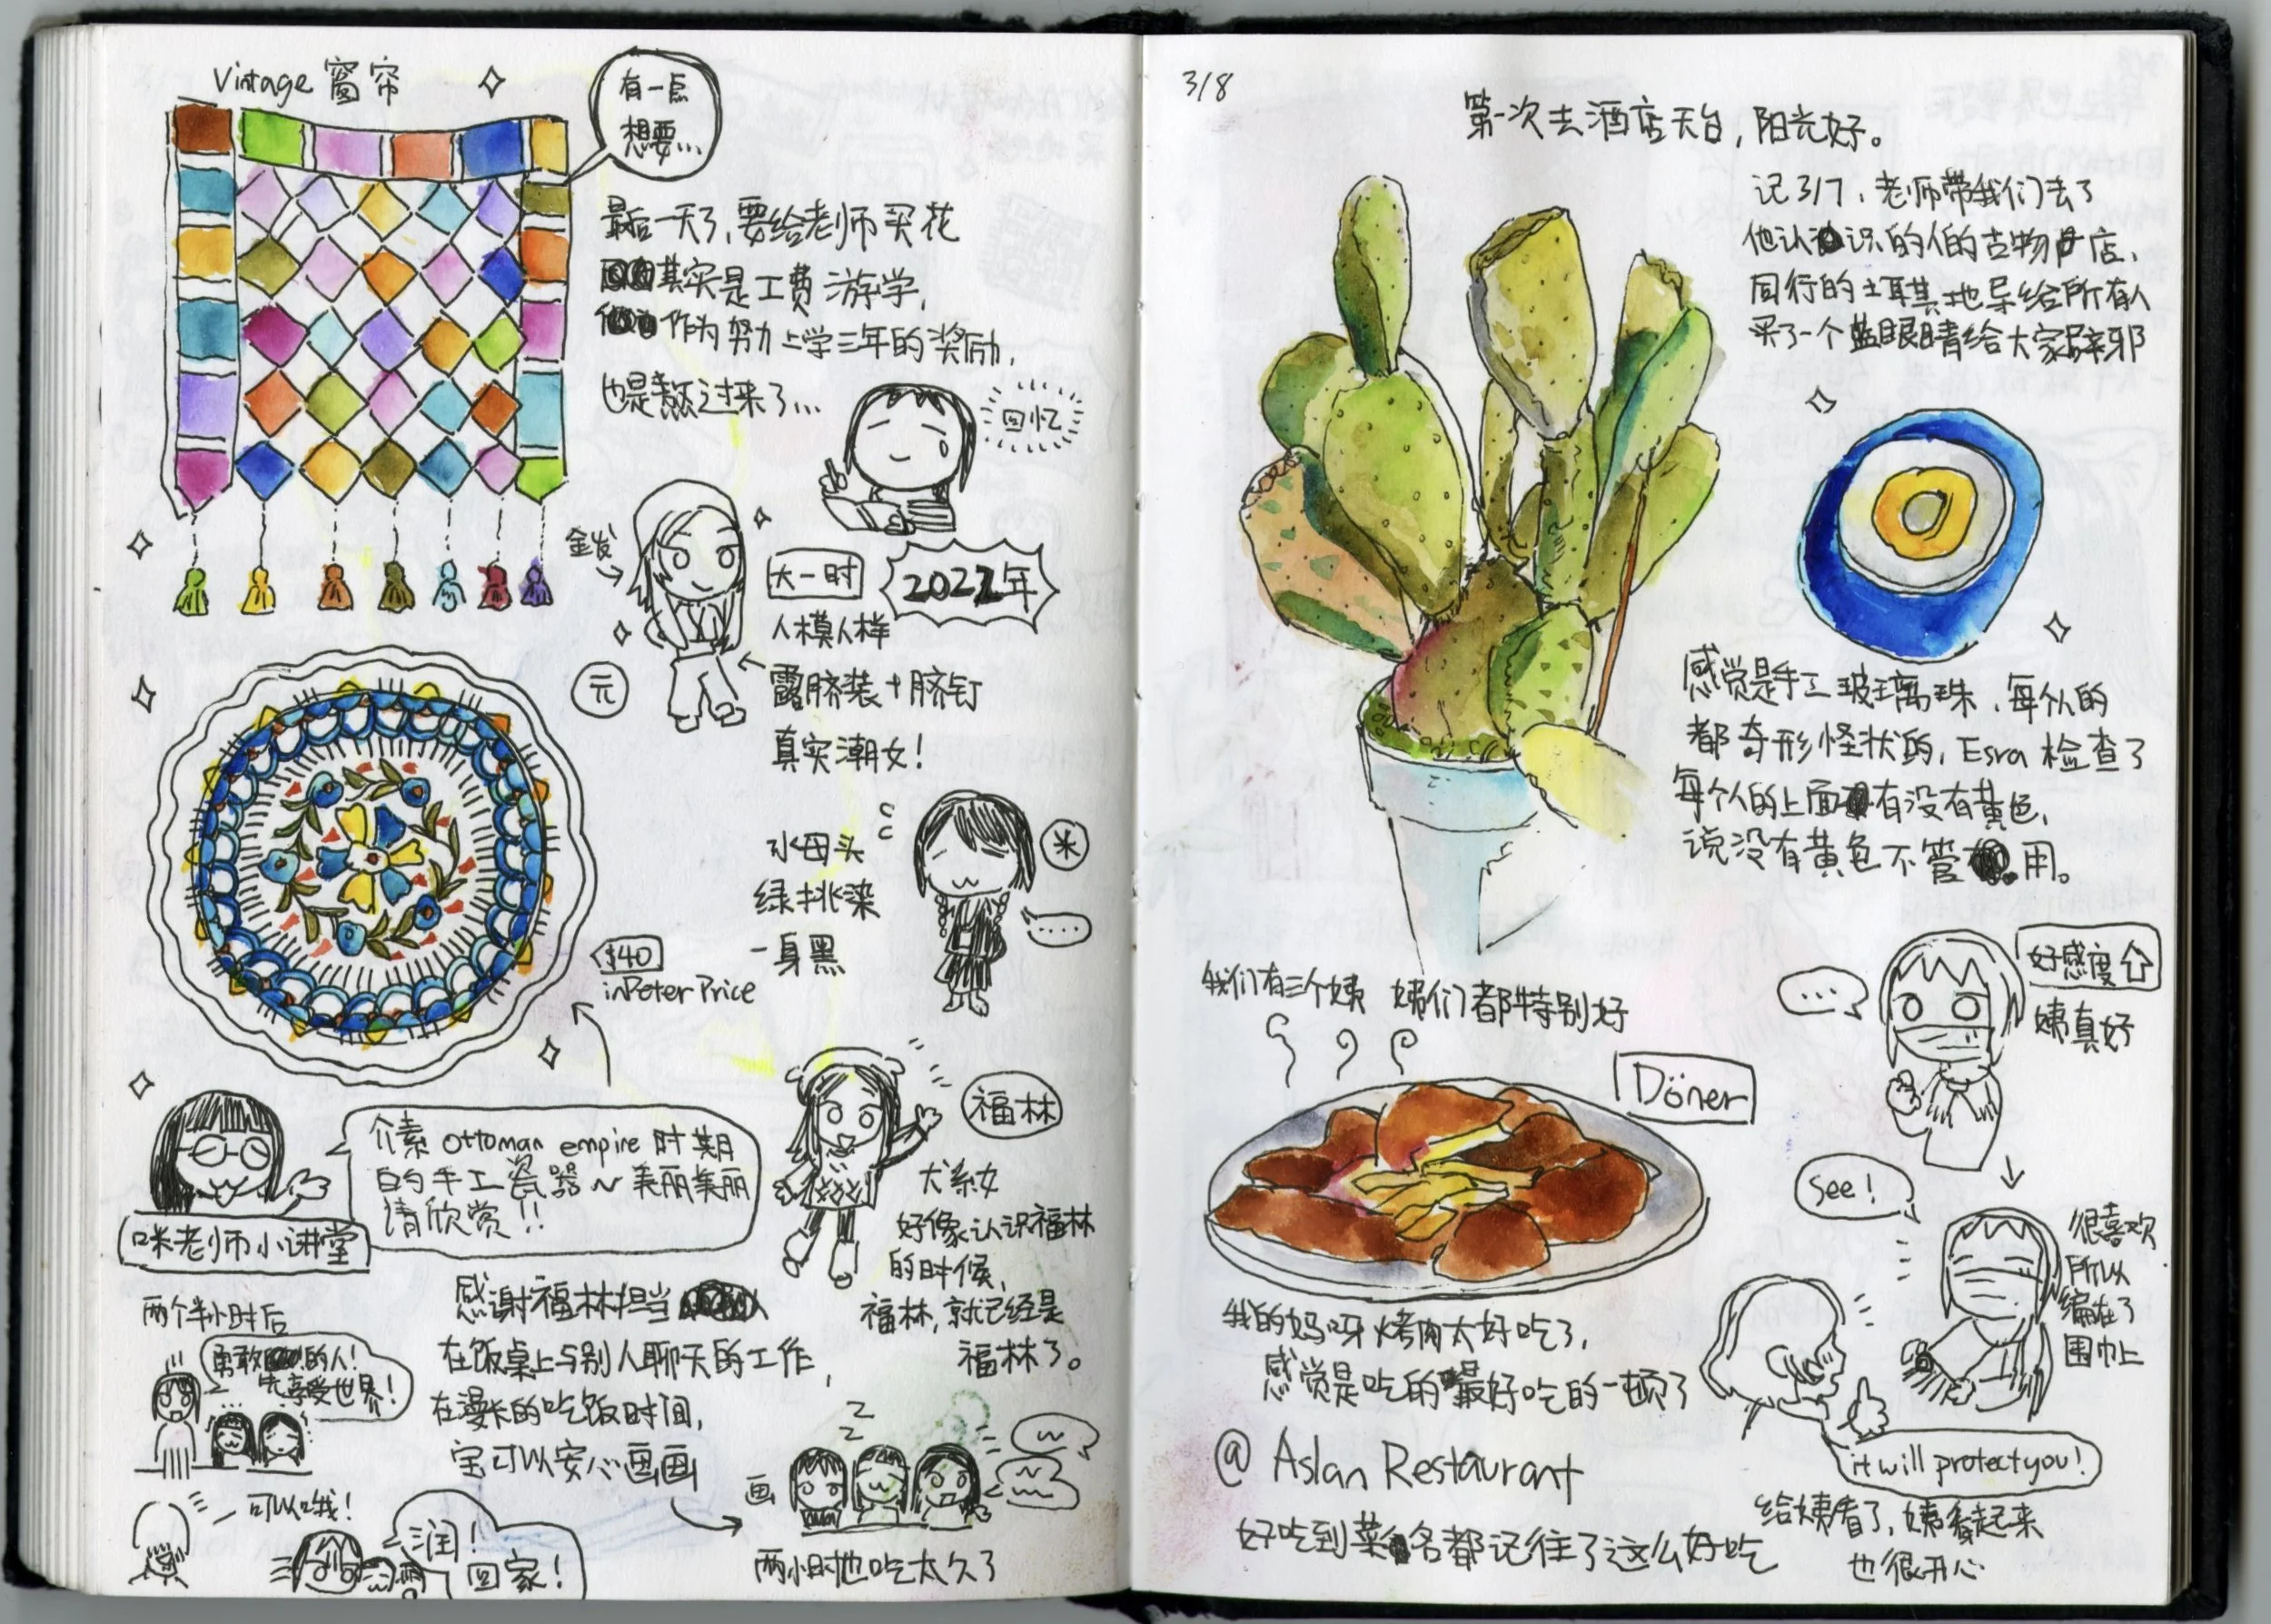 Vintage 窗帘
有一点
想要...
最后一天了,要给老师买花
其实是工费游学,
作为努力上学三年的奖励,
也是熬过来了...
回忆
金发
大一时
2022年
人模人样
露脐装+脐钉
真实潮女!
元
水母头
绿挑染
一身黑
米
....
$40
in Peter Price
介素 Ottoman empire 时期
的手工瓷器~美丽美丽
请欣赏!!
咪老师小讲堂
福林
犬系女
好像认识福林
的时候,
福林,就已经是
福林了。
两个半小时后
勇敢的人!
先享受世界!
感谢福林担当
在饭桌上与别人聊天的工作,
在漫长的吃饭时间,
宝可以安心画画
可以哦!
润!
回家!
画
Z
Z
两小时也吃太久了
3/8
第一次去酒店天台,阳光好。
记3/7,老师带我们去了
他认识的人的古物店,
同行的土耳其地导给所有人
买了一个蓝眼睛给大家辟邪
感觉是手工玻璃珠,每个人的
都奇形怪状的,Esra 检查了
每个人的上面有没有黄色,
说没有黄色不管用。
我们有三个姨 姨们都特别好
...
好感度⇧
姨真好
Döner
See!
很喜欢
所以
编在了
围巾上
我的妈呀烤肉太好吃了,
感觉是吃的最好吃的一顿了
@ Aslan Restaurant
好吃到菜名都记住了这么好吃
it will protect you!
给姨看了,姨看起来
也很开心